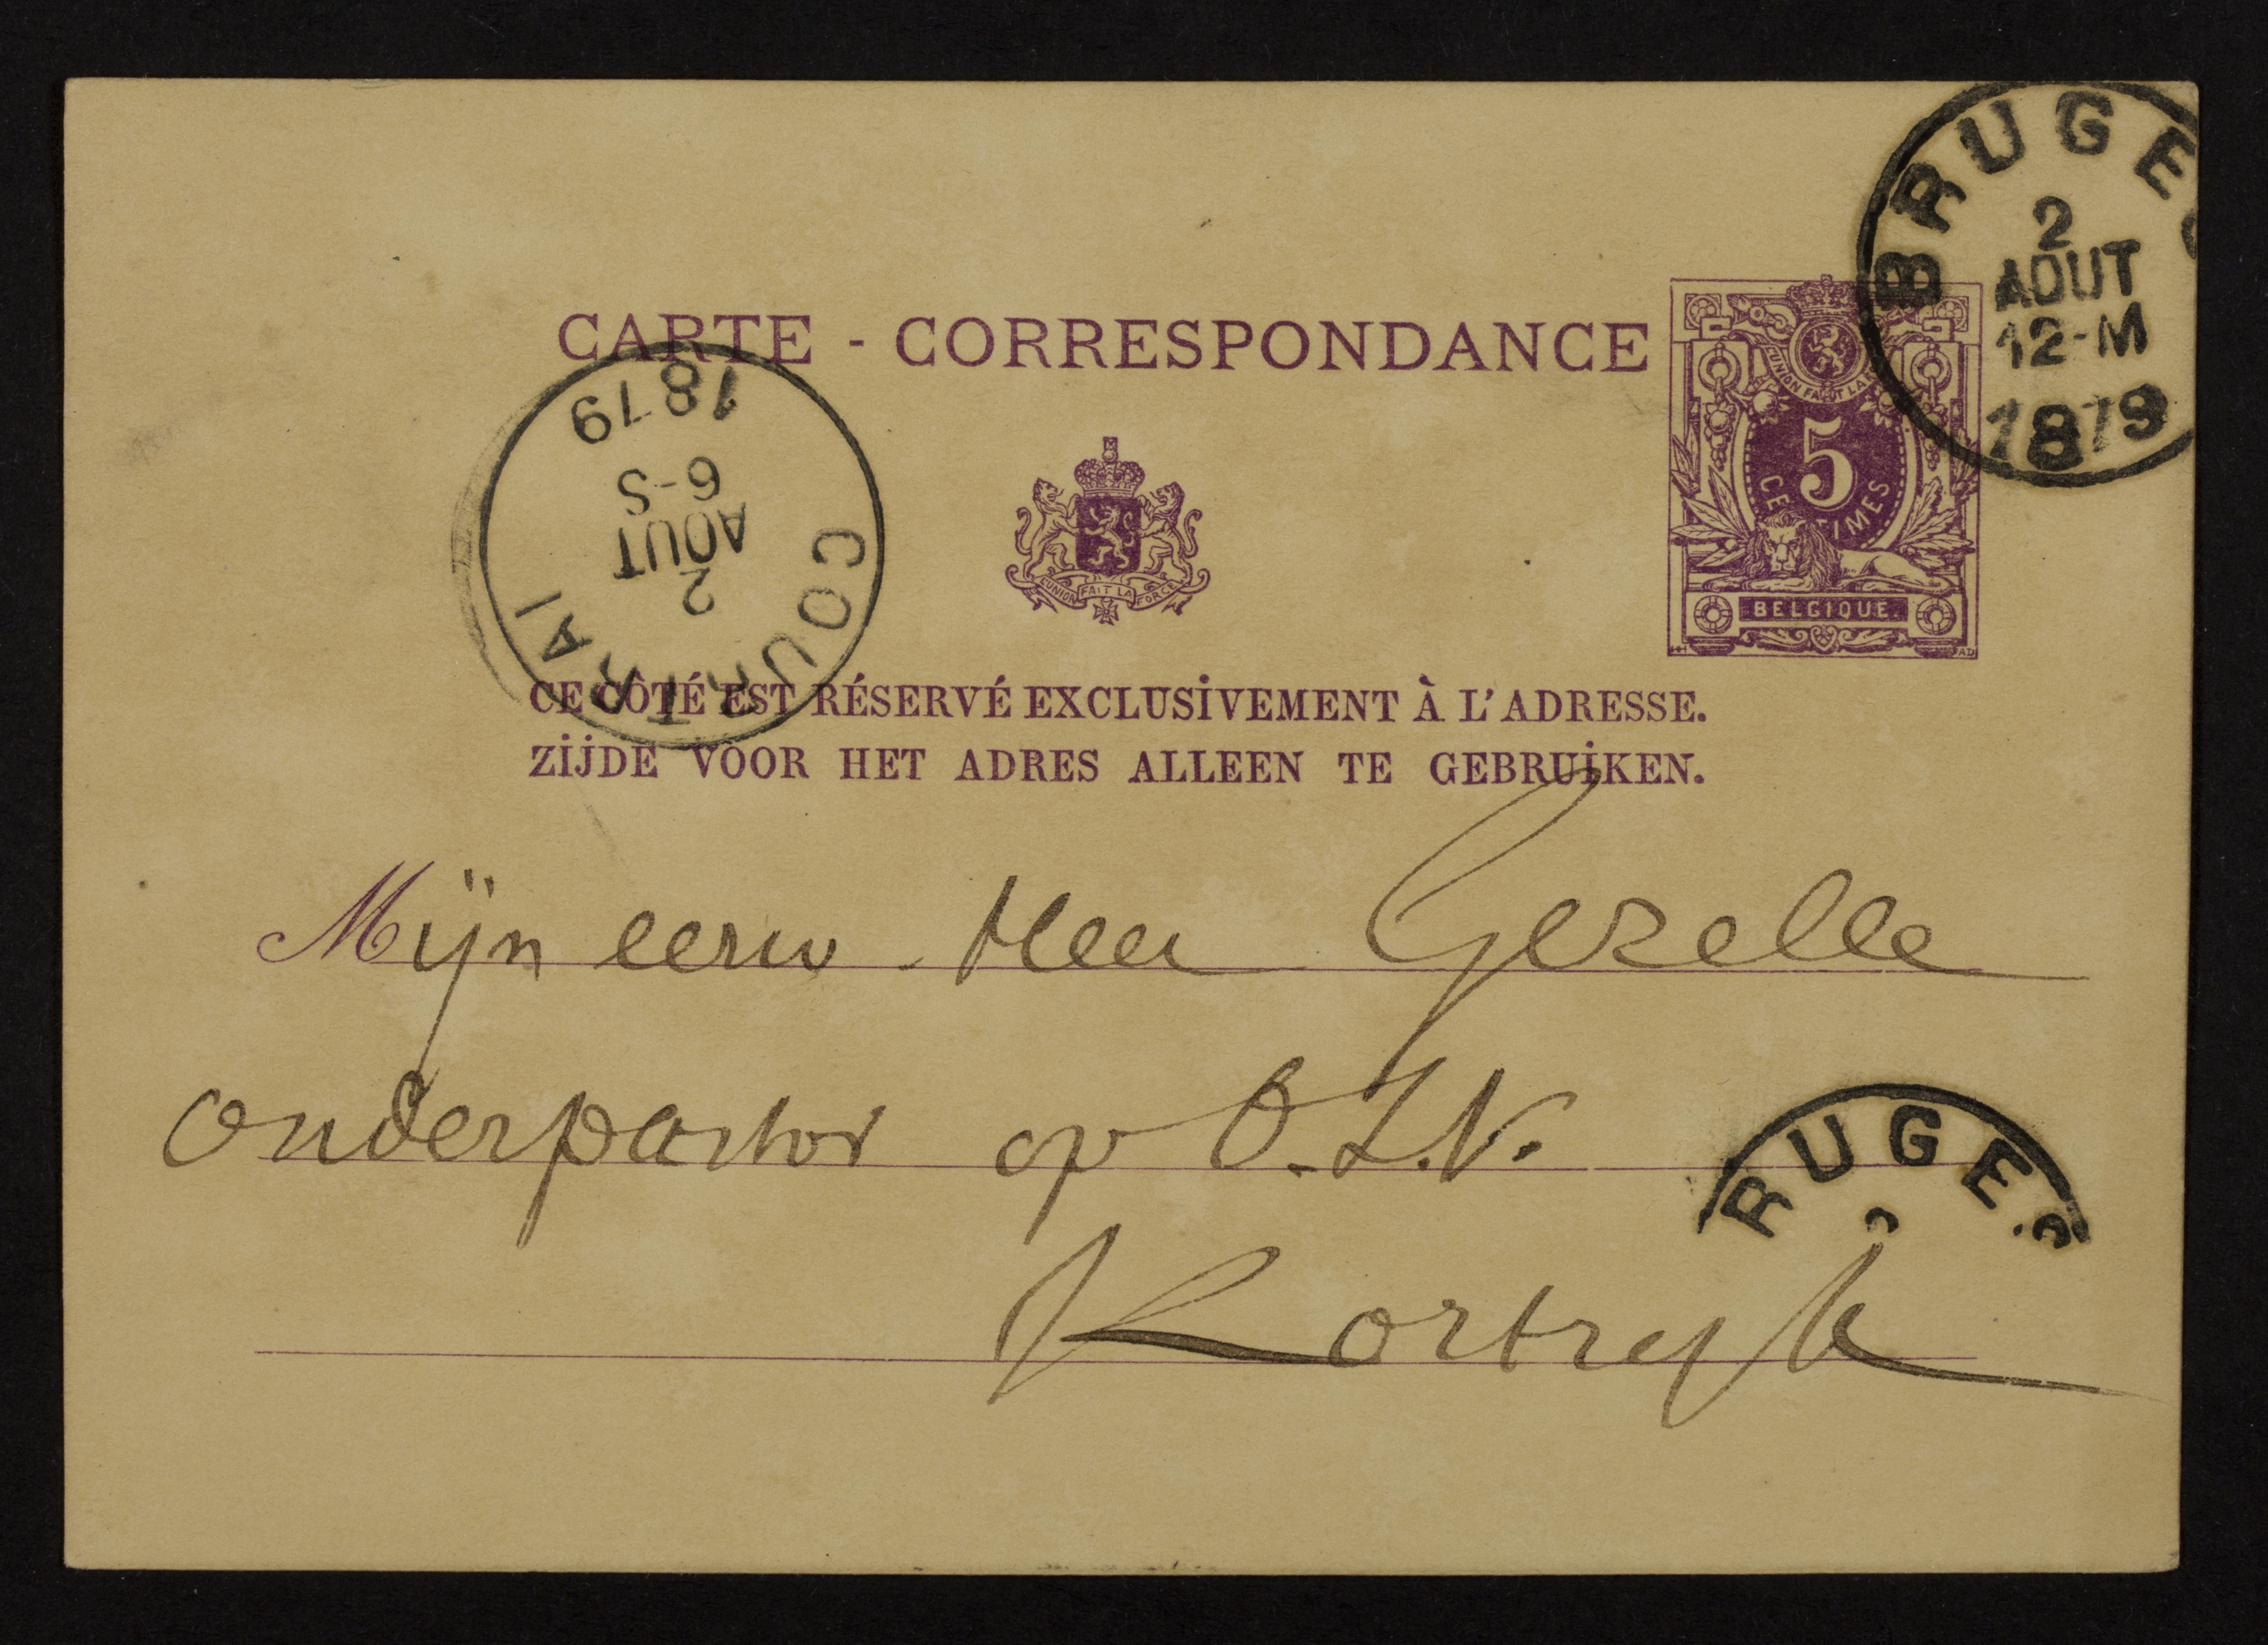 BRUGES
2
AOUT
12-M
1879
CARTE - CORRESPONDANCE
L'UNION FAIT LA
5
CENTIMES
BELGIQUE
COURTRAI
2
AOUT
6-S
1879
L'UNION FAIT LA FORCE
CE CÔTÉ EST RÉSERVÉ EXCLUSIVEMENT À L'ADRESSE.
ZIJDE VOOR HET ADRES ALLEEN TE GEBRUIKEN.
Mijn eerw. Heer Gezelle
onderpastor op O.L.V.
RUGES
Kortryk